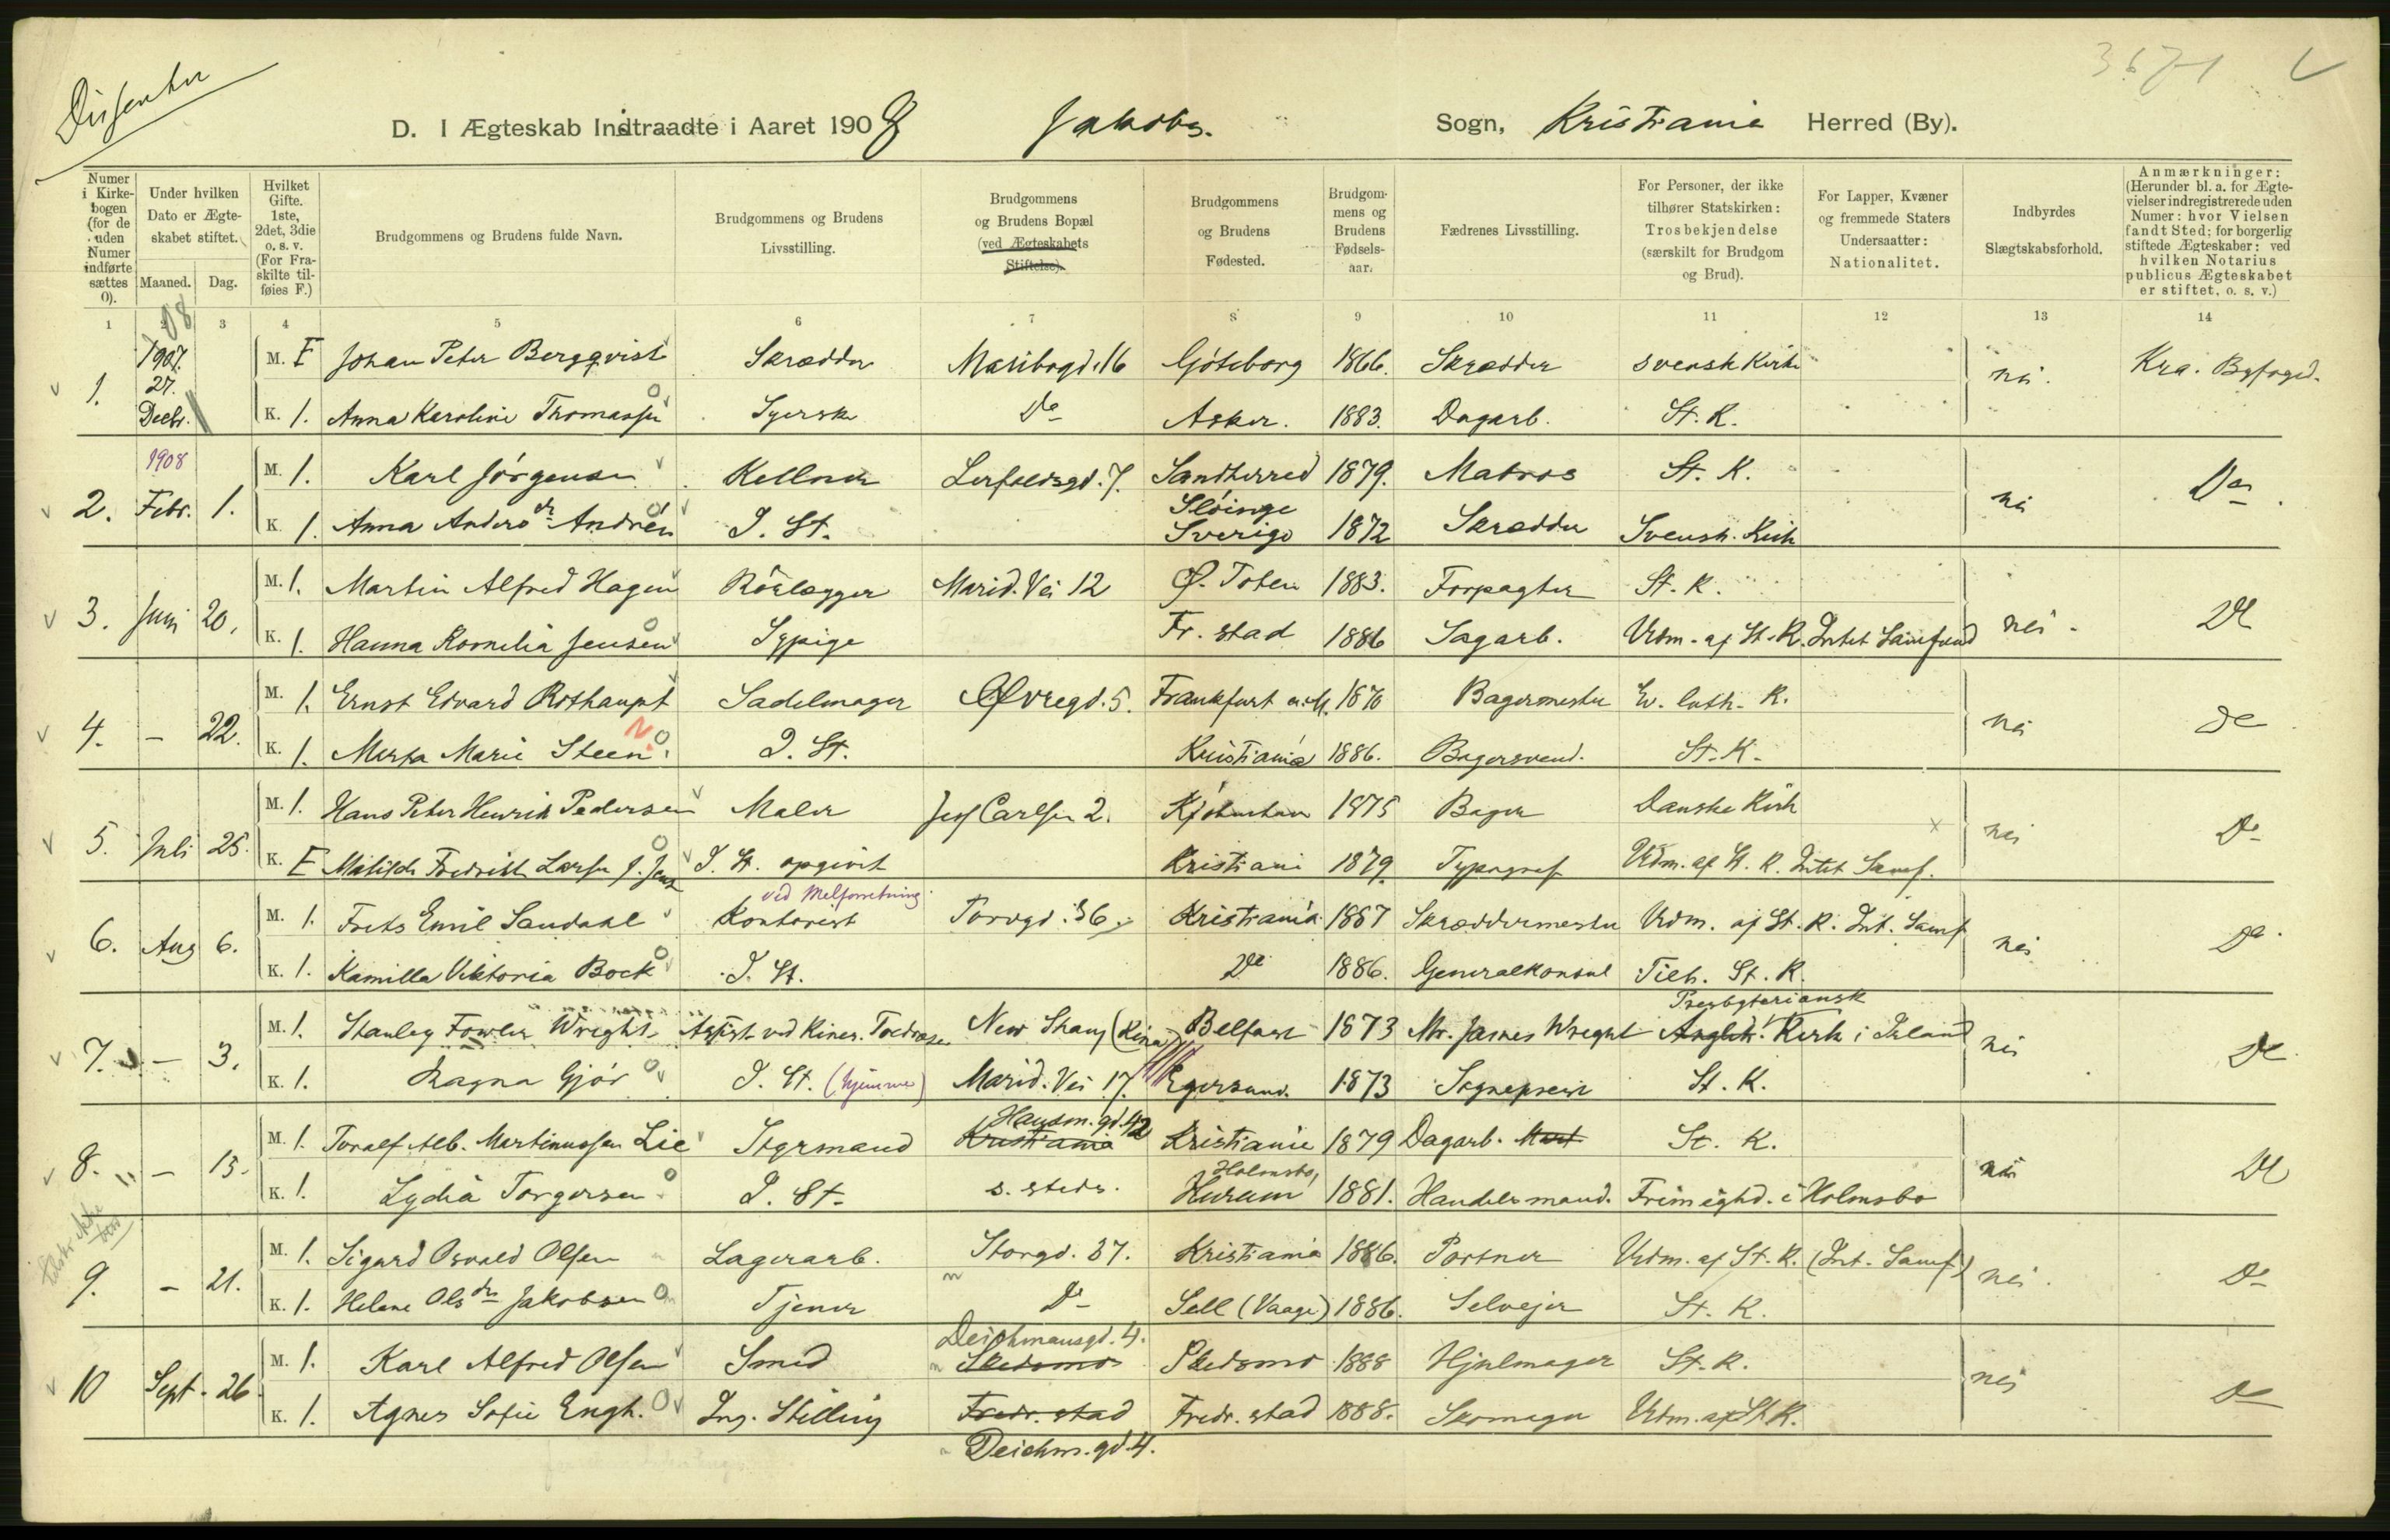 Dissenter
3671
D. I Ægteskab Indtraadte i Aaret 1908 Jakobs. Sogn, Kristiania Herred (By).
Numer i Kirkebogen (for de uden Numer indførte sættes 0).
Under hvilken Dato er Ægteskabet stiftet. Maaned. Dag.
Hvilket Gifte. 1ste, 2det, 3die o. s. v. (For Fraskilte tilføies F.)
Brudgommens og Brudens fulde Navn.
Brudgommens og Brudens Livsstilling.
Brudgommens og Brudens Bopæl (ved Ægteskabets Stiftelse).
Brudgommens og Brudens Fødested.
Brudgommens og Brudens Fødselsaar.
Fædrenes Livsstilling.
For Personer, der ikke tilhører Statskirken: Trosbekjendelse (særskilt for Brudgom og Brud).
For Lapper, Kvæner og fremmede Staters Undersaatter: Nationalitet.
Indbyrdes Slægtskabsforhold.
Anmærkninger: (Herunder bl. a. for Ægtevielser indregistrerede uden Numer: hvor Vielsen fandt Sted; for borgerlig stiftede Ægteskaber: ved hvilken Notarius publicus Ægteskabet er stiftet, o. s. v.)
1 2 3 4 5 6 7 8 9 10 11 12 13 14
08
1. 1907. 27. Decbr. M. F Johan Peter Bergqvist Skrædder Maribogd. 16 Göteborg 1866. Skrædder svensk Kirke nei. Kra. Byfoged.
K. 1. Anna Karoline Thomassen Syerske Do Asker. 1883. Dagarb. St. K.
1908
2. Febr. 1. M. 1. Karl Jörgensen Kellner Lerfaldsgd. 7. Sandherred 1879. Matros St. K. nei Do.
K. 1. Anna Andersdr Andrén I. St. Slöinge Sverige 1872 Skrædder Svensk. Kirk
3. Juni 20. M. 1. Martin Alfred Hagen Rörlægger Marid. Vei 12 Ø. Toten 1883. Forpagter St. K. nei. Do
K. 1. Hanna Kornelia Jensen Sypige Fr. stad 1886 Sagarb. Udm. af St. K. Intet Samfund
4. - 22. M. 1. Ernst Edvard Rothaupt Sadelmager Øvregd. 5. Frankfurt a. M. 1876 Bagermester Ev. luth. K. nei Do
K. 1. Marta Marie Steen I. St. Kristiania 1886. Bagersvend. St. K.
5. Juli 25. M. 1. Hans Peter Henrik Pedersen Maler Jess Carlsen 2. Kjøbenhavn 1875 Bager Danske Kirk nei Do
K. F Matilde Fredrikke Larsen f. Jens I. St. opgivet Kristiani 1879. Typograf Udm. af St. K. Intet Samf.
ved Melforretning
6. Aug 6. M. 1. Frits Emil Sandahl Kontorist Torvgd. 36. Kristiania 1887 Skræddermester Udm. af St. K. Int. Samf nei Do.
K. 1. Kamilla Viktoria Bock I. St. Do 1886. Generalkonsul Tilh. St. K.
Presbyteriansk
7. - 3. M. 1. Stanley Fowler Wright Assist. ved Kines. Toldvæsen New Shang (Kina) Belfast 1873 Mr. James Wright Anglik. Kirk i Irland nei Do
K. 1. Ragna Gjör I. St. (hjemme) Marid. Vei 17. Egersund. 1873 Sogneprest St. K.
Hausm. gd. 42
8. - 15. M. 1. Toralf Alb. Martinussen Lie Styrmand Kristiania Kristiania 1879 Dagarb. St. K. nei Do
K. 1. Lydia Torgersen I. St. s. steds. Holmsbo, Hurum 1881. Handelsmand. Frimeighd. i Holmsbo
9. - 21. M. 1. Sigurd Osvald Olsen Lagerarb. Storgd. 37. Kristiania 1886. Portner Udm. af St. K. (Int. Samf.) nei. Do
K. 1. Helene Olsdtr Jakobsen Tjener Do Sell (Vaage) 1886. Selvejer St. K.
Deichmansgd. 4.
10 Sept. 26. M. 1. Karl Alfred Olsen Smed Skedsmo Skedsmo 1888 Hjulmager St. K. nei Do
K. 1. Agnes Sofie Engh. Ing. Stilling Fredr. stad Fredr. stad 1888. Skomager Udm. af St. K.
Deichm. gd. 4.